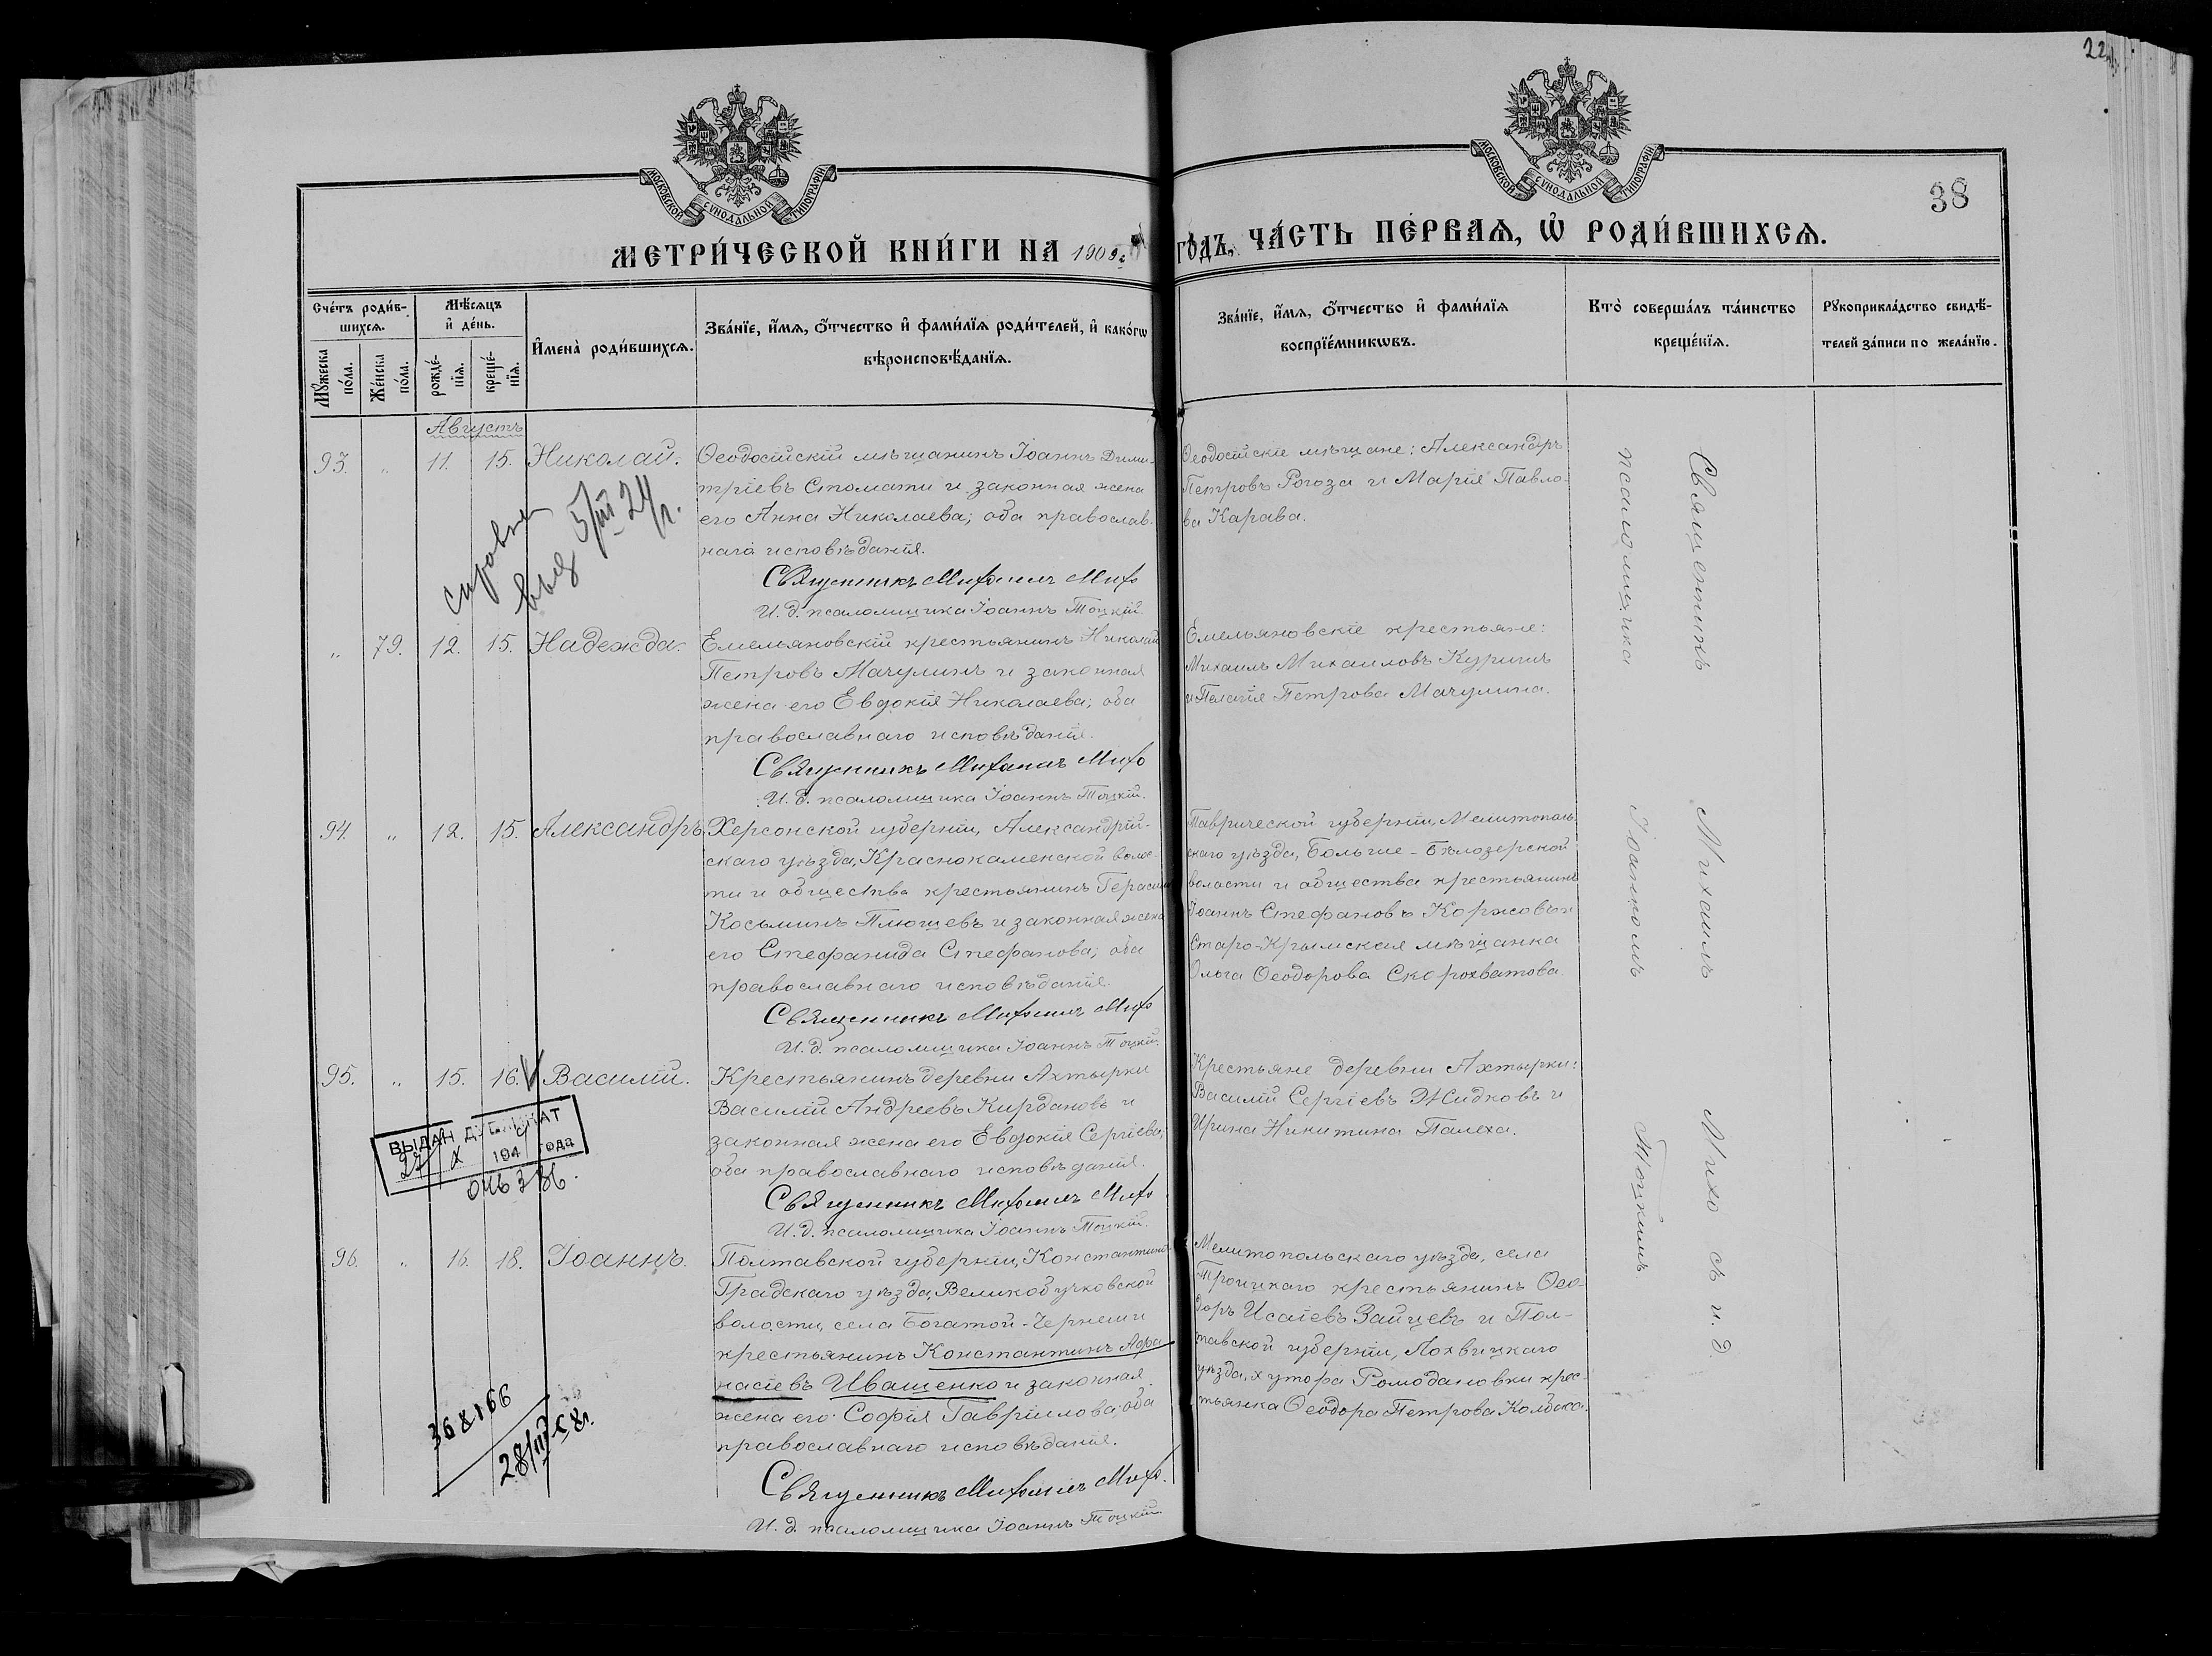 22
МОСКОВСКОЙ СѴНОДАЛЬНОЙ ТИПОГРАФІИ
МОСКОВСКОЙ СѴНОДАЛЬНОЙ ТИПОГРАФІИ
38
МЕТРИ́ЧЕСКОЙ КНИ́ГИ НА 1909 ГО́ДЪ, ЧА́СТЬ ПЕ́РВАѦ, Ѽ РОДИ́ВШИХСѦ.
Сче́тъ роди́в-
шихсѧ.
Мꙋ́жеска по́ла.
Же́нска по́ла.
Мѣ́сѧцъ
и҆ де́нь.
рожде́-
нїѧ.
креще́-
нїѧ.
И҆мена̀ роди́вшихсѧ.
Зва́нїе, и҆́мѧ, ѻ҆́тчество и҆ фами́лїѧ роди́телей, и҆ како́гѡ
вѣроисповѣ́данїѧ.
Зва́нїе, и҆́мѧ, ѻ҆́тчество и҆ фами́лїѧ
воспрїе́мникѡвъ.
Кто̀ соверша́лъ та́инство
креще́нїѧ.
Рꙋкоприкла́дство свидѣ́-
телей за́писи по жела́нїю.
Августъ
93. " 11. 15. Николай.
Ѳеодосійскій мѣщанинъ Іоаннъ Дими-
тріевъ Стомати и законная жена
его Анна Николаева; оба православ-
наго исповѣданія.
Священникъ Михаилъ Михо
И. д. псаломщика Іоаннъ Тоцкій.
Ѳеодосійскіе мѣщане: Александръ
Петровъ Рогоза и Марія Павло-
ва Карава.
5/III 24 г.
" 79. 12. 15. Надежда.
Емельяновскій крестьянинъ Николай
Петровъ Мачулинъ и законная
жена его Евдокія Николаева; оба
православнаго исповѣданія.
Священникъ Михаилъ Михо
И. д. псаломщика Іоаннъ Тоцкій.
Емельяновскіе крестьяне:
Михаилъ Михаиловъ Куришъ
и Пелагія Петрова Мачулина.
94. " 12. 15. Александръ.
Херсонской губерніи, Александрій-
скаго уѣзда, Краснокаменской волос-
ти и общества крестьянинъ Герасимъ
Косьминъ Плющевъ и законная жена
его Стефанида Стефанова; оба
православнаго исповѣданія.
Священникъ Михаилъ Михо
И. д. псаломщика Іоаннъ Тоцкій.
Таврической губерніи, Мелитополь-
скаго уѣзда, Больше-Бѣлозерской
волости и общества крестьянинъ
Іоаннъ Стефановъ Коржовъ и
Старо-Крымская мѣщанка
Ольга Ѳеодорова Скорохватова.
95. " 15. 16. Василій.
Крестьянинъ деревни Ахтырки
Василій Андреевъ Кирдановъ и
законная жена его Евдокія Сергіева;
оба православнаго исповѣданія.
Священникъ Михаилъ Михо
И. д. псаломщика Іоаннъ Тоцкій.
Крестьяне деревни Ахтырки:
Василій Сергіевъ Жидковъ и
Ирина Никитина Палеха.
ВЫДАН ДУБЛИКАТ
27 X 194 года
046386.
96. " 16. 18. Іоаннъ.
Полтавской губерніи, Константино-
Градскаго уѣзда, Великобучковской
волости, села Богатой-Чернещи
крестьянинъ Константинъ Афа-
насіевъ Иващенко и законная
жена его София Гавріилова; оба
православнаго исповѣданія.
Священникъ Михаилъ Михо.
И. д. псаломщика Іоаннъ Тоцкій.
Мелитопольскаго уѣзда, села
Троицкаго крестьянинъ Ѳео-
доръ Исаіевъ Зайцевъ и Пол-
тавской губерніи, Лохвицкаго
уѣзда, хутора Ромодановки крес-
тьянка Ѳеодора Петрова Колбаса.
368166
28/III 58 г.
Священникъ Михаилъ Михо съ и. д.
псаломщика Іоанномъ Тоцкимъ.